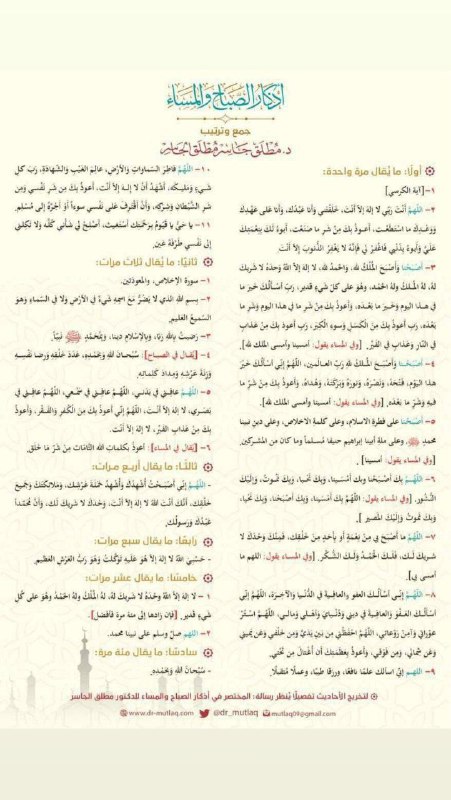 أذكار الصباح والمساء
جمع وترتيب
د. مُطلَق جَاسِر مُطلَق الجَاسِر
أولًا: ما يُقال مرة واحدة:
١- [آية الكرسي]
٢- اللهُمَّ أَنْتَ رَبِّي لا إلهَ إلَّا أَنْتَ، خَلَقْتَنِي وأَنا عَبْدُكَ، وأَنا على عَهْدِكَ
وَوَعْدِكَ ما اسْتَطَعْتُ، أَعـوذُ بِكَ مِنْ شَرِّ ما صَنَعْتُ، أَبوءُ لَكَ بِنِعْمَتِكَ
عَلَيَّ وأَبوءُ بِذَنْبِي فَاغْفِرْ لِي فَإنَّهُ لا يَغْفِرُ الذُّنوبَ إلَّا أَنْتَ
٣- أَصْبَحْنا وأَصْبَحَ المُلْكُ لله، والحَمدُ لله، لا إلهَ إلّا اللهُ وَحْدَهُ لا شَرِيكَ
لَهُ، لَهُ المُلكُ ولَهُ الحَمْدُ، وهُوَ على كلّ شَيءٍ قدير، رَبّ أَسْأَلُكَ خَيرَ ما
في هـذا اليَوم وَخَيرَ ما بَعْـدَه، وأَعوذُ بِكَ مِنْ شَرِّ ما في هذا اليَوم وَشَرِّ ما
بَعْدَه، رَب أَعوذُ بِكَ مِنَ الكَسَلِ وَسوءِ الكِبَر، رَب أَعوذُ بِكَ مِنْ عَذابٍ
في النّارِ وَعَذابٍ في القَبْر. [وفي المساء يقول: أمسينا وأمسى الملك لله].
٤- أَصْبَحْنا وأَصْبَحَ المُـلْكُ لِلّٰهِ رَبِّ العـالَمين، اللهُمَّ إِنِّي أَسْأَلُكَ خَيْرَ
هذا اليَوْم، فَتْحَهُ، وَنَصْرَهُ، وَنورَهُ وَبَرَكَتَهُ، وَهُداهُ، وأَعوذُ بِكَ مِنْ شَرِّ ما
فيهِ وَشَرِّ ما بَعْدَه. [وفي المساء يقول: أمسينا وأمسى الملك لله].
٥- أَصْبَحْنا على فطرةِ الاسلام، وعلى كلمةِ الاخلاص، وعلى دينِ نبينا
محمدٍ ﷺ، وعلى ملةِ أبينا إبراهيم حنيفًا مُسلماً وما كان من المشركين.
[وفي المساء يقول: أمسينا].
٦- اللهُمَّ بِكَ أَصْبَحْنا وبك أَمْسَينا، وبِكَ نَحْـيا، وبِكَ نَمُوتُ، وَإلَيْكَ
النُّشور. [وفي المساء يقول: اللهُمَّ بِكَ أَمْسَيْنا، وَبِكَ أَصْبَحْنا، وَبِكَ نَحْيا،
وَبِكَ نَمُوتُ وَإلَيْكَ المَصير].
٧- اللهُمَّ ما أَصْبَحَ بي مِنْ نِعْمَةٍ أَو بِأَحدٍ مِنْ خَلْقِك، فَمِنْكَ وَحْدَكَ لا
شَريكَ لَـك، فَلَـكَ الحَمْـدُ وَلَـكَ الشُّكْر. [وفي المساء يقول: اللهم ما
أمسى بي].
٨- اللهُمَّ إِنِّـي أسألُك العفو والعافيـةَ في الدُّنْيـا والآخِـرَة، اللهُمَّ إنِّي
أَسْألُكَ العَـفْوَ والعافيـةَ في ديني وَدُنْيـايَ وأَهْـلي ومَالـي، اللّهُمَّ استُـرْ
عَوْراتي وآمِنْ رَوْعاتي، اللّهُمَّ احْفَظْنِي مِن بَينِ يَدَيَّ وَمِن خَلْفي وَعَن يَميني
وَعَن شِمالي، وَمِن فَوْقي، وَأَعوذُ بِعَظَمَتِكَ أَن أُغْتالَ مِن تَحْتي.
٩- اللهم إنِّي أسألك علمًا نافعًا، ورزقًا طيبًا، وعملًا مُتقبلًا.
١٠- اللَّهُمَّ فَاطِرَ السَّمَاوَاتِ وَالأَرْضِ، عَالِمَ الغَيْبِ وَالشَّهَادَةِ، رَبَّ كلِّ
شَيءٍ وَمَلِيكَه، أَشْهَدُ أَنْ لا إلـهَ إلاَّ أَنْتَ، أَعوذُ بِكَ مِن شَرِّ نَفْسي وَمِن
شَرِّ الشَّيْطانِ وَشِركِهِ، وَأَنْ أَقْتَرِفَ على نَفْسي سوءاً أَوْ أَجُرَّهُ إلى مُسْلِم.
١١- يا حَيُّ يا قَيُّومُ بِرَحْمَتِكَ أَستَغيث، أَصْلِحْ لِي شَأْنِي كُلَّه، ولا تَكِلني
إلى نَفْسي طَرْفَةَ عَين.
ثانيًا: ما يُقال ثلاث مرات:
١- سورة الإخلاص، والمعوذتين.
٢- بِسمِ اللهِ الذي لا يَضُرُّ مَعَ اسمِهِ شَيءٌ في الأرْضِ وَلا في السّماءِ وَهوَ
السّميعُ العَليم.
٣- رَضيتُ بِاللهِ رَبًّا، وَبالإسْلامِ دينا، وبِمُحَمَّدٍ ﷺ نَبِيًّا.
٤- [يُقال في الصباح]: سُبْحـانَ اللهِ وَبِحَمْدِهِ، عَدَدَ خَلْقِهِ وَرِضا نَفْسِهِ
وَزِنَةَ عَرْشِهِ ومِداد كلماته.
٥- اللّهُمَّ عافِني في بَدَني، اللّهُمَّ عافِني في سَمْعي، اللّهُمَّ عافِني في
بَصَري، لا إلهَ إلّا أَنْـتَ، اللّهُمَّ إنِّي أَعوذُ بِكَ مِنَ الْكُفرِ وَالفَـقْرِ، وَأَعوذُ
بِكَ مِنْ عَذابِ القَبْرِ، لا إلهَ إلّا أَنْتَ.
٦- [يُقال في المساء]: أعوذُ بكلماتِ الله التَّامَّات مِنْ شَرِّ مَا خَلَق.
ثالثًا: ما يقال أربع مرات:
- اللّهُمَّ إِنِّي أَصْبَحْتُ أُشْهِدُكَ وَأُشْهِدُ حَمَلَةَ عَرْشِك، وَمَلائِكَتَكَ وَجَميعَ
خَلْقِك، أَنَّكَ أَنْتَ اللهُ لا إلهَ إلّا أَنْتَ، وَحْدَكَ لا شَريكَ لَكَ، وَأَنَّ مُحَمّداً
عَبْدُكَ وَرَسولُك.
رابعًا: ما يقال سبع مرات:
- حَسْبِيَ اللهُ لا إلهَ إلاّ هُوَ عَلَيهِ تَوَكَّلْتُ وَهُوَ رَبُّ العَرْشِ العَظيمِ.
خامسًا: ما يقال عشر مرات:
١- لا إلهَ إلَّا اللهُ وَحْدَهُ لا شَرِيكَ لَهُ، لَهُ المُلْكُ ولَهُ الحَمْدُ وهُوَ على كُلِّ
شَيءٍ قَدِير. [فَإن زادها إلى مئة مرة فأفضل].
٢- اللهم صلِّ وسلم على نبينا محمد.
سادسًا: ما يقال مئة مرة:
- سُبْحَانَ اللهِ وَبِحَمْدِهِ.
لتخريج الأحاديث تفصيلًا يُنظر رسالة: المختصر في أذكار الصباح والمساء للدكتور مطلق الجاسر
www.dr-mutlaq.com @dr_mutlaq mutlaq09@gmail.com